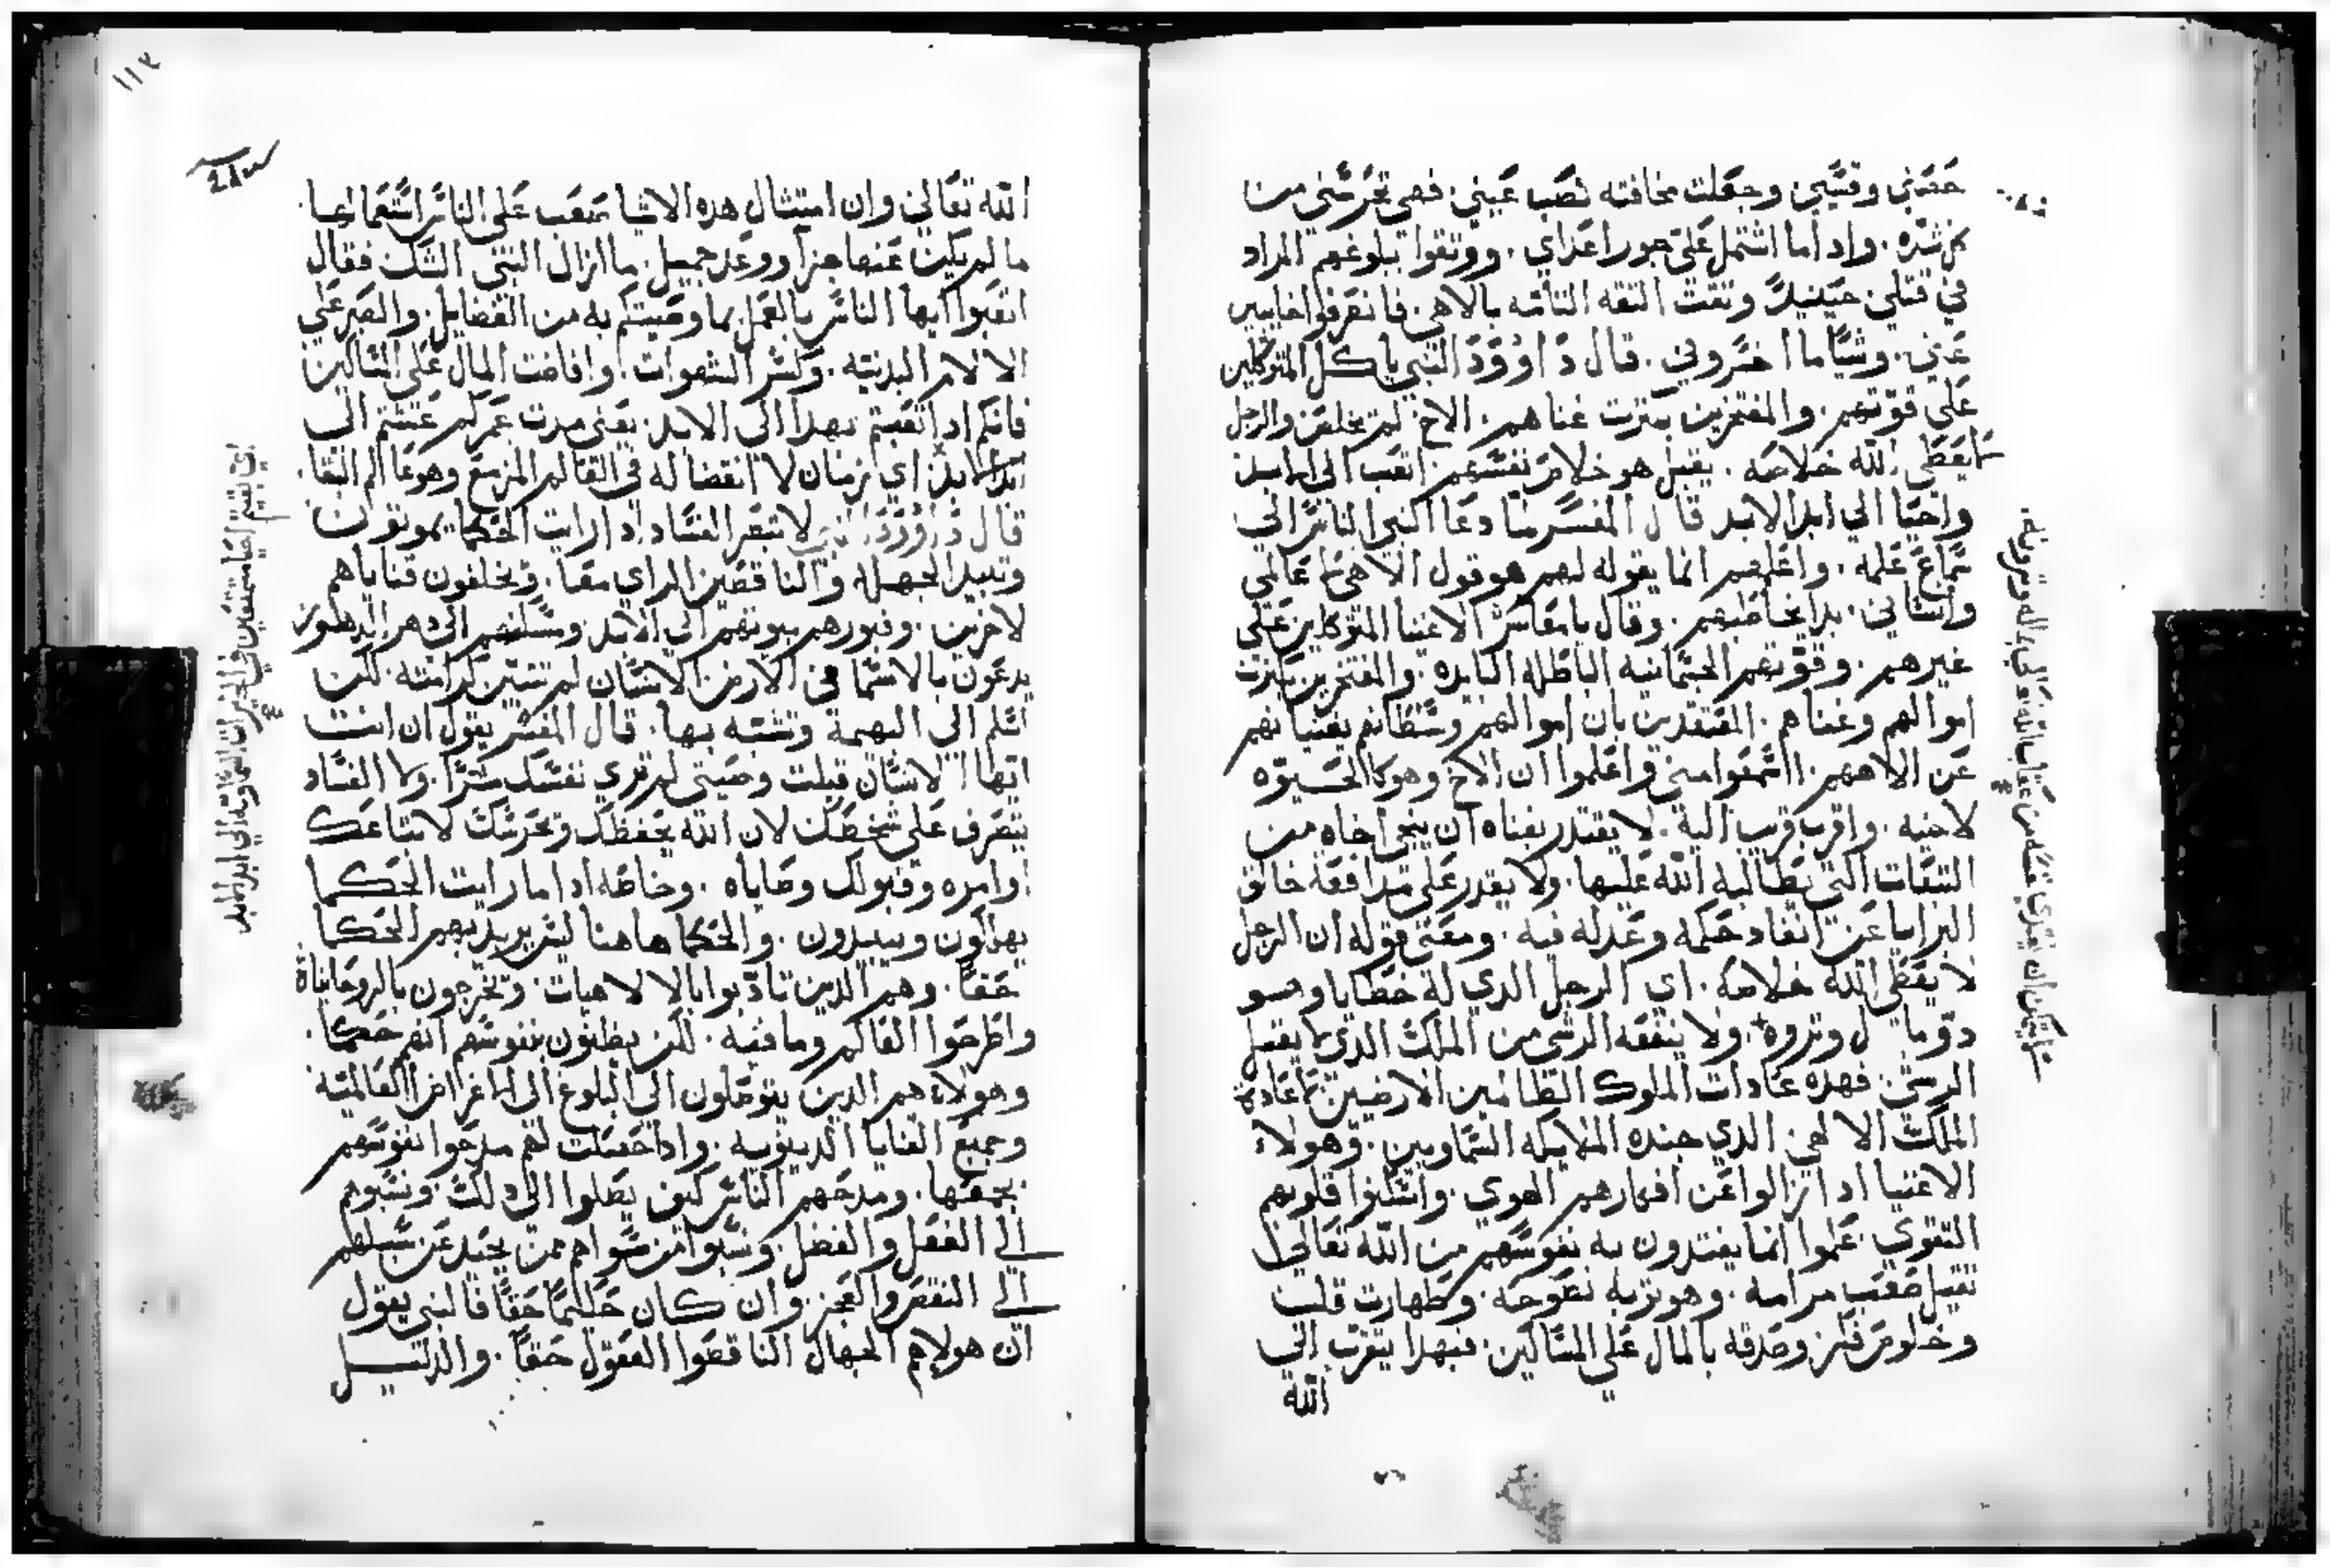 حقبي وقسيي وجعلت مخافته نصب عيني فهي تحرسني من
كل شده . واذا ما اشتمل علي جور اعداي . ووثقوا ببلوغهم المراد
في قتلي حينيذ وثقت الثقه التامه بالاهي . فانصرفوا خايبين
عني . وشيا ما اخسروني . قال داوود النبي يا كل المتوكلين
علي قوتهم . والمفتخرين بكثرت غناهم . الاخ لم يخلص والرجل
لا يعطي الله خلاصه . يقبل هو خلاص نفسهم اتعب الي الابد
واحيا الي ابد الابد قال المفسر لما دعا النبي الناس الي
سماع علمه . واعلمهم انما يقوله لهم هو قول الاهي
وانساني . بدا يخاطبهم . وقال يا معاشر الاغنيا المتوكلين علي
غيرهم . وقوتهم الجسمانيه الباطله البايده . والمفتخرين بكثرت
اموالهم وغناهم . المعتقدين بان اموالهم وسلطانهم يغنيانهم
عن الاههم . اسمعوا مني واعلموا ان الاخ وهو كالحيوه
لاخيه . واقرب قريب اليه . لا يقتدر بغناه ان ينجي اخاه من
التبعات التي يطالبه الله عليها . ولا يقدر علي مدافعة خالق
البرايا عن انفاد حكمه وعدله فيه . ومعني قوله ان الرجل
لا يعطي الله خلاصه . اي الرجل الدي له خطايا وهو
دو مال وثروه . ولا ينفعه الرشي من الملك الدي لا يقبل
الرشي . فهده عادات الملوك الظالمين الارضيين لا عادة
الملك الالاهي الدي جنده الملايكه السماويين . وهولاء
الاغنيا ادا زالوا عن افكارهم الهوي . واسكنوا قلوبهم
التقوي علموا انما يفتدون به نفوسهم من الله تعالي
ثقيل صعب مرامه . وهو توبه نصوحه . وطهارت قلب
وخلوص فكر وصدقه بالمال علي المساكين . فبهدا يتقرب الي
الله
لا يمكن ان يفتدي نفسه من عقاب الله
١١٤
الله تعالي وان امتثال هده الاشيا صعب علي الناس استعمالها
ما لم يكن عنها جزا ووعد جميل . ما ازال النبي الشك فقال
اتعبوا ايها الناس بالعمل بما وصيتكم به من الفضايل . والصبر علي
الالام البدنيه . وكسر الشهوات . وافاضت المال علي المساكين
فانكم ادا تعبتم بهدا الي الابد . يعني مدت عمركم عشتم الي
ابد الابد . اي زمان لا انقضا له في العالم المزمع وهو عالم البقا .
قال داوود النبي لا تبصر الفساد ادا رايت الحكما يموتون
وتبيد الجهله والناقصين الراي معا . ويخلفون قناياهم
لاخرين . وقبورهم بيوتهم الي الابد . ومسكنهم الي دهر الدهور
يدعون بالاسما في الارض الانسان لم تتبين كرامته . لكن
اسلم الي البهيمة وتشبه بها . قال المفسر يقول ان انت
ايها الانسان قبلت وصيتي لم تري نفسك شرا . ولا الفساد
يتصرف علي شخصك لان الله يحفظك ويحرسك لاتباعك
اوامره وقبولك وصاياه . وخاصه ادا ما رايت الحكما
يهلكون ويبيدون . والحكما هاهنا ليس يريد بهم الحكما
حقا . وهم الدين تادبوا بالالاهيات . ويخرجون بالروحانياة
واطرحوا العالم وما فيه . لكن يظنون بنفوسهم انهم حكما .
وهولاء هم الدين يتوصلون الي البلوغ الي الاغراض العالميه
وجميع القنايا الدينويه . وادا حصلت لهم مدحوا نفوسهم
بجمعها . ومدحهم الناس كيف يصلوا الي دلك . ونسبوهم
الي العقل والفضل . ونسبوا من سواهم ممن يحيد عن سبيلهم
الي النقص والعجز . وان كان حكيما حقا فالنبي يقول
ان هولاء هم الجهال الناقصوا العقول حقا . والدليل
اي بقيتم احيا متنعمين في الخيرات السماويه الي ابد الابد